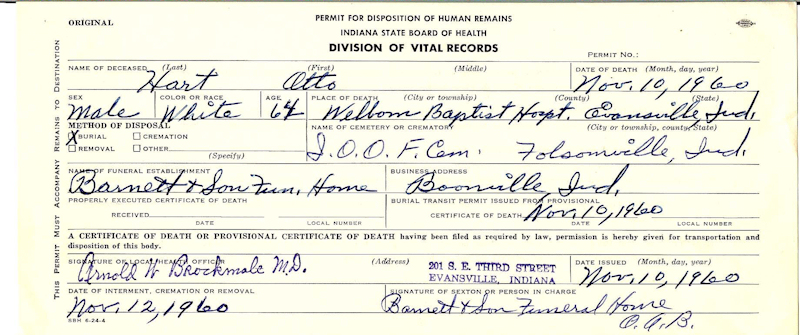 ORIGINAL
PERMIT FOR DISPOSITION OF HUMAN REMAINS
INDIANA STATE BOARD OF HEALTH
DIVISION OF VITAL RECORDS
PERMIT NO.:
THIS PERMIT MUST ACCOMPANY REMAINS TO DESTINATION
NAME OF DECEASED (Last) (First) (Middle) DATE OF DEATH (Month, day, year)
Hart Otto Nov. 10, 1960
SEX COLOR OR RACE AGE PLACE OF DEATH (City or township) (County) (State)
Male White 64 Welborn Baptist Hospt. Evansville, Ind.
METHOD OF DISPOSAL NAME OF CEMETERY OR CREMATORY (City or township, county, State)
X BURIAL CREMATION
REMOVAL OTHER I.O.O.F. Cem. Folsomville, Ind.
(Specify)
NAME OF FUNERAL ESTABLISHMENT BUSINESS ADDRESS
Barnett & Son Fun. Home Boonville, Ind.
PROPERLY EXECUTED CERTIFICATE OF DEATH BURIAL TRANSIT PERMIT ISSUED FROM PROVISIONAL
RECEIVED CERTIFICATE OF DEATH Nov. 10, 1960
DATE LOCAL NUMBER DATE LOCAL NUMBER
A CERTIFICATE OF DEATH OR PROVISIONAL CERTIFICATE OF DEATH having been filed as required by law, permission is hereby given for transportation and
disposition of this body.
SIGNATURE OF LOCAL HEALTH OFFICER (Address) 201 S. E. THIRD STREET DATE ISSUED (Month, day, year)
Arnold W Brockmole M.D. EVANSVILLE, INDIANA Nov. 10, 1960
DATE OF INTERMENT, CREMATION OR REMOVAL SIGNATURE OF SEXTON OR PERSON IN CHARGE
Nov. 12, 1960 Barnett & Son Funeral Home
SBH 6-24-4 O.A.B.